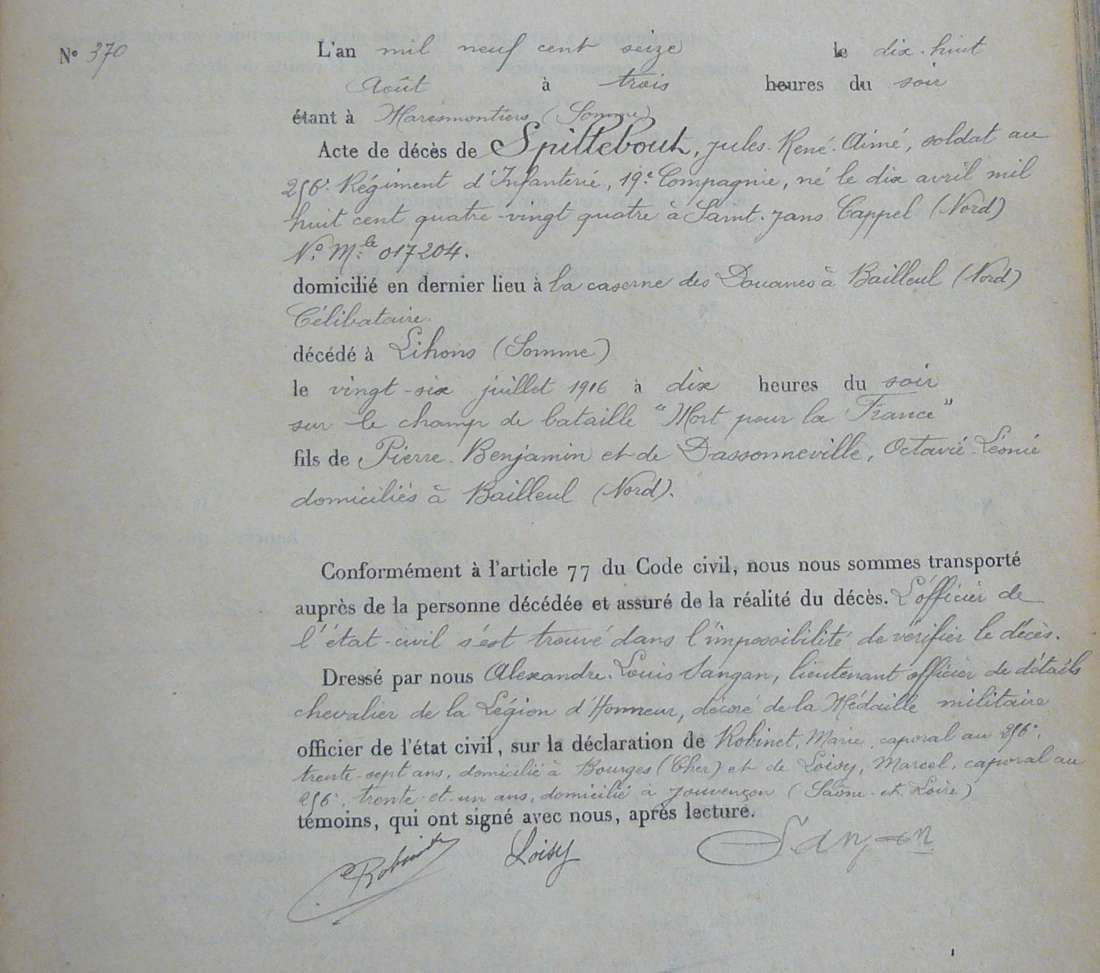 N° 370
L'an mil neuf cent seize le dix-huit
Août à trois heures du soir
étant à Maresmontiers (Somme)
Acte de décès de Spittebout, Jules-René-Aimé, soldat au
256e Régiment d'Infanterie, 19e Compagnie, né le dix avril mil
huit cent quatre-vingt quatre à Saint-Jans Cappel (Nord)
N° Mle 017204.
domicilié en dernier lieu à la caserne des Douanes à Bailleul (Nord)
Célibataire.
décédé à Lihons (Somme)
le vingt-six juillet 1916 à dix heures du soir
sur le champ de bataille "Mort pour la France"
fils de Pierre-Benjamin et de Dassonneville, Octavie-Léonie
domiciliés à Bailleul (Nord).
Conformément à l'article 77 du Code civil, nous nous sommes transporté
auprès de la personne décédée et assuré de la réalité du décès. L'officier de
l'état-civil s'est trouvé dans l'impossibilité de vérifier le décès.
Dressé par nous Alexandre-Louis Sangan, lieutenant officier de détails
chevalier de la Légion d'Honneur, décoré de la Médaille militaire
officier de l'état civil, sur la déclaration de Robinet, Marie, caporal au 256e,
trente-sept ans, domicilié à Bourges (Cher) et de Loisy, Marcel, caporal au
256e, trente-et-un ans, domicilié à Jouvençon (Saône-et-Loire)
témoins, qui ont signé avec nous, après lecture.
Robinet Loisy Sangan